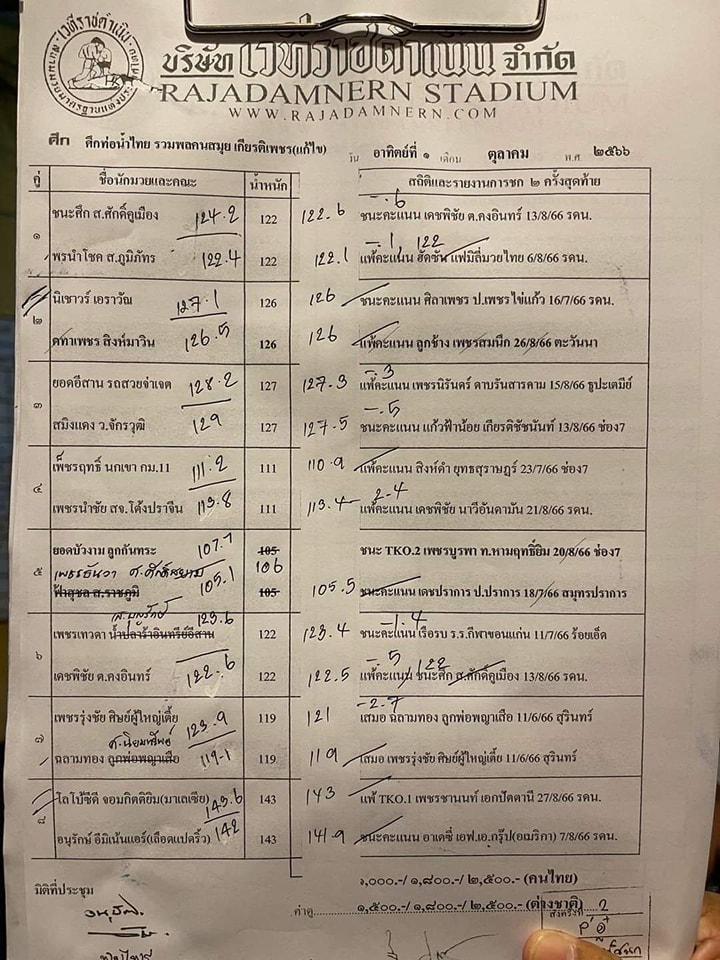 เวทีราชดำเนิน
บริษัท เวทีราชดำเนิน จำกัด
RAJADAMNERN STADIUM
WWW.RAJADAMNERN.COM
ศึก ศึกท่อน้ำไทย รวมพลคนสมุย เกียรติเพชร(แก้ไข) วัน อาทิตย์ที่ ๑ เดือน ตุลาคม พ.ศ ๒๕๖๖
คู่ ชื่อนักมวยและคณะ น้ำหนัก สถิติและรายงานการชก ๒ ครั้งสุดท้าย
๑ ชนะศึก ส.ศักดิ์คูเมือง 124.2 122 122.6 -.6 ชนะคะแนน เดชพิชัย ต.คงอินทร์ 13/8/66 รดน.
พรนำโชค ส.ภูมิภัทร 122.4 122 122.1 -.1, 122 แพ้คะแนน ฮัดซัน แฟมิลี่มวยไทย 6/8/66 รดน.
๒ นิเชาวร์ เอราวัณ 127.1 126 126 ชนะคะแนน ศิลาเพชร ป.เพชรไข่แก้ว 16/7/66 รดน.
คทาเพชร สิงห์มาวิน 126.5 126 126 แพ้คะแนน ลูกช้าง เพชรสมนึก 26/8/66 ตะวันนา
๓ ยอดอีสาน รถสวยจ่าเจต 128.2 127 127.3 -.3 แพ้คะแนน เพชรนิรันดร์ ดาบรันสารคาม 15/8/66 ธูปะเตมีย์
สมิงแดง ว.จักรวุฒิ 129 127 127.5 -.5 ชนะคะแนน แก้วฟ้าน้อย เกียรติชัชนันท์ 13/8/66 ช่อง7
๔ เพ็ชรฤทธิ์ นกเขา กม.11 111.2 111 110.9 แพ้คะแนน สิงห์ดำ ยุทธสุราษฎร์ 23/7/66 ช่อง7
เพชรนำชัย สจ.โต้งปราจีน 113.8 111 113.4 -2.4 แพ้คะแนน เดชพิชัย นาวีอันดามัน 21/8/66 รดน.
๕ ยอดบัวงาม ลูกกันทระ 107.7 105 ชนะ TKO.2 เพชรบูรพา ท.หามฤทธิ์ยิม 20/8/66 ช่อง7
เพชรธันวา ศ.ศักดิ์สยาม 106
ฟ้าสุชล ส.ราชภูมิ 105.1 105 105.5 ชนะคะแนน เดชปราการ ป.ปราการ 18/7/66 สมุทรปราการ
ส.บุญรักษ์ 123.6
๖ เพชรเทวดา น้ำปลาร้าอินทรีย์อีสาน 122 123.4 -1.4 ชนะคะแนน เรือรบ ร.ร.กีฬาขอนแก่น 11/7/66 ร้อยเอ็ด
เดชพิชัย ต.คงอินทร์ 122.6 122 122.5 -.5 122 แพ้คะแนน ชนะศึก ส.ศักดิ์คูเมือง 13/8/66 รดน.
๗ เพชรรุ่งชัย ศิษย์ผู้ใหญ่เตี้ย 123.9 119 121 -2.7 เสมอ ฉลามทอง ลูกพ่อพญาเสือ 11/6/66 สุรินทร์
ศ.นิยมทรัพย์
ฉลามทอง ลูกพ่อพญาเสือ 119.1 119 119 เสมอ เพชรรุ่งชัย ศิษย์ผู้ใหญ่เตี้ย 11/6/66 สุรินทร์
๘ โลโบ้ซีดี จอมกิตติยิม(มาเลเซีย) 143.6 143 143 แพ้ TKO.1 เพชรชานนท์ เอกปัตตานี 27/8/66 รดน.
อนุรักษ์ อีมิเน้นแอร์(เลือดแปดริ้ว) 142 143 141.9 ชนะคะแนน อาเดซี่ เอฟ.เอ.กรุ๊ป(อเมริกา) 7/8/66 รดน.
,๐๐๐.-/ ๑,๘๐๐.-/ ๒,๕๐๐.- (คนไทย)
มติที่ประชุม ค่าดู ๑,๕๐๐.-/ ๑,๘๐๐.-/ ๒,๕๐๐.- (ต่างชาติ)